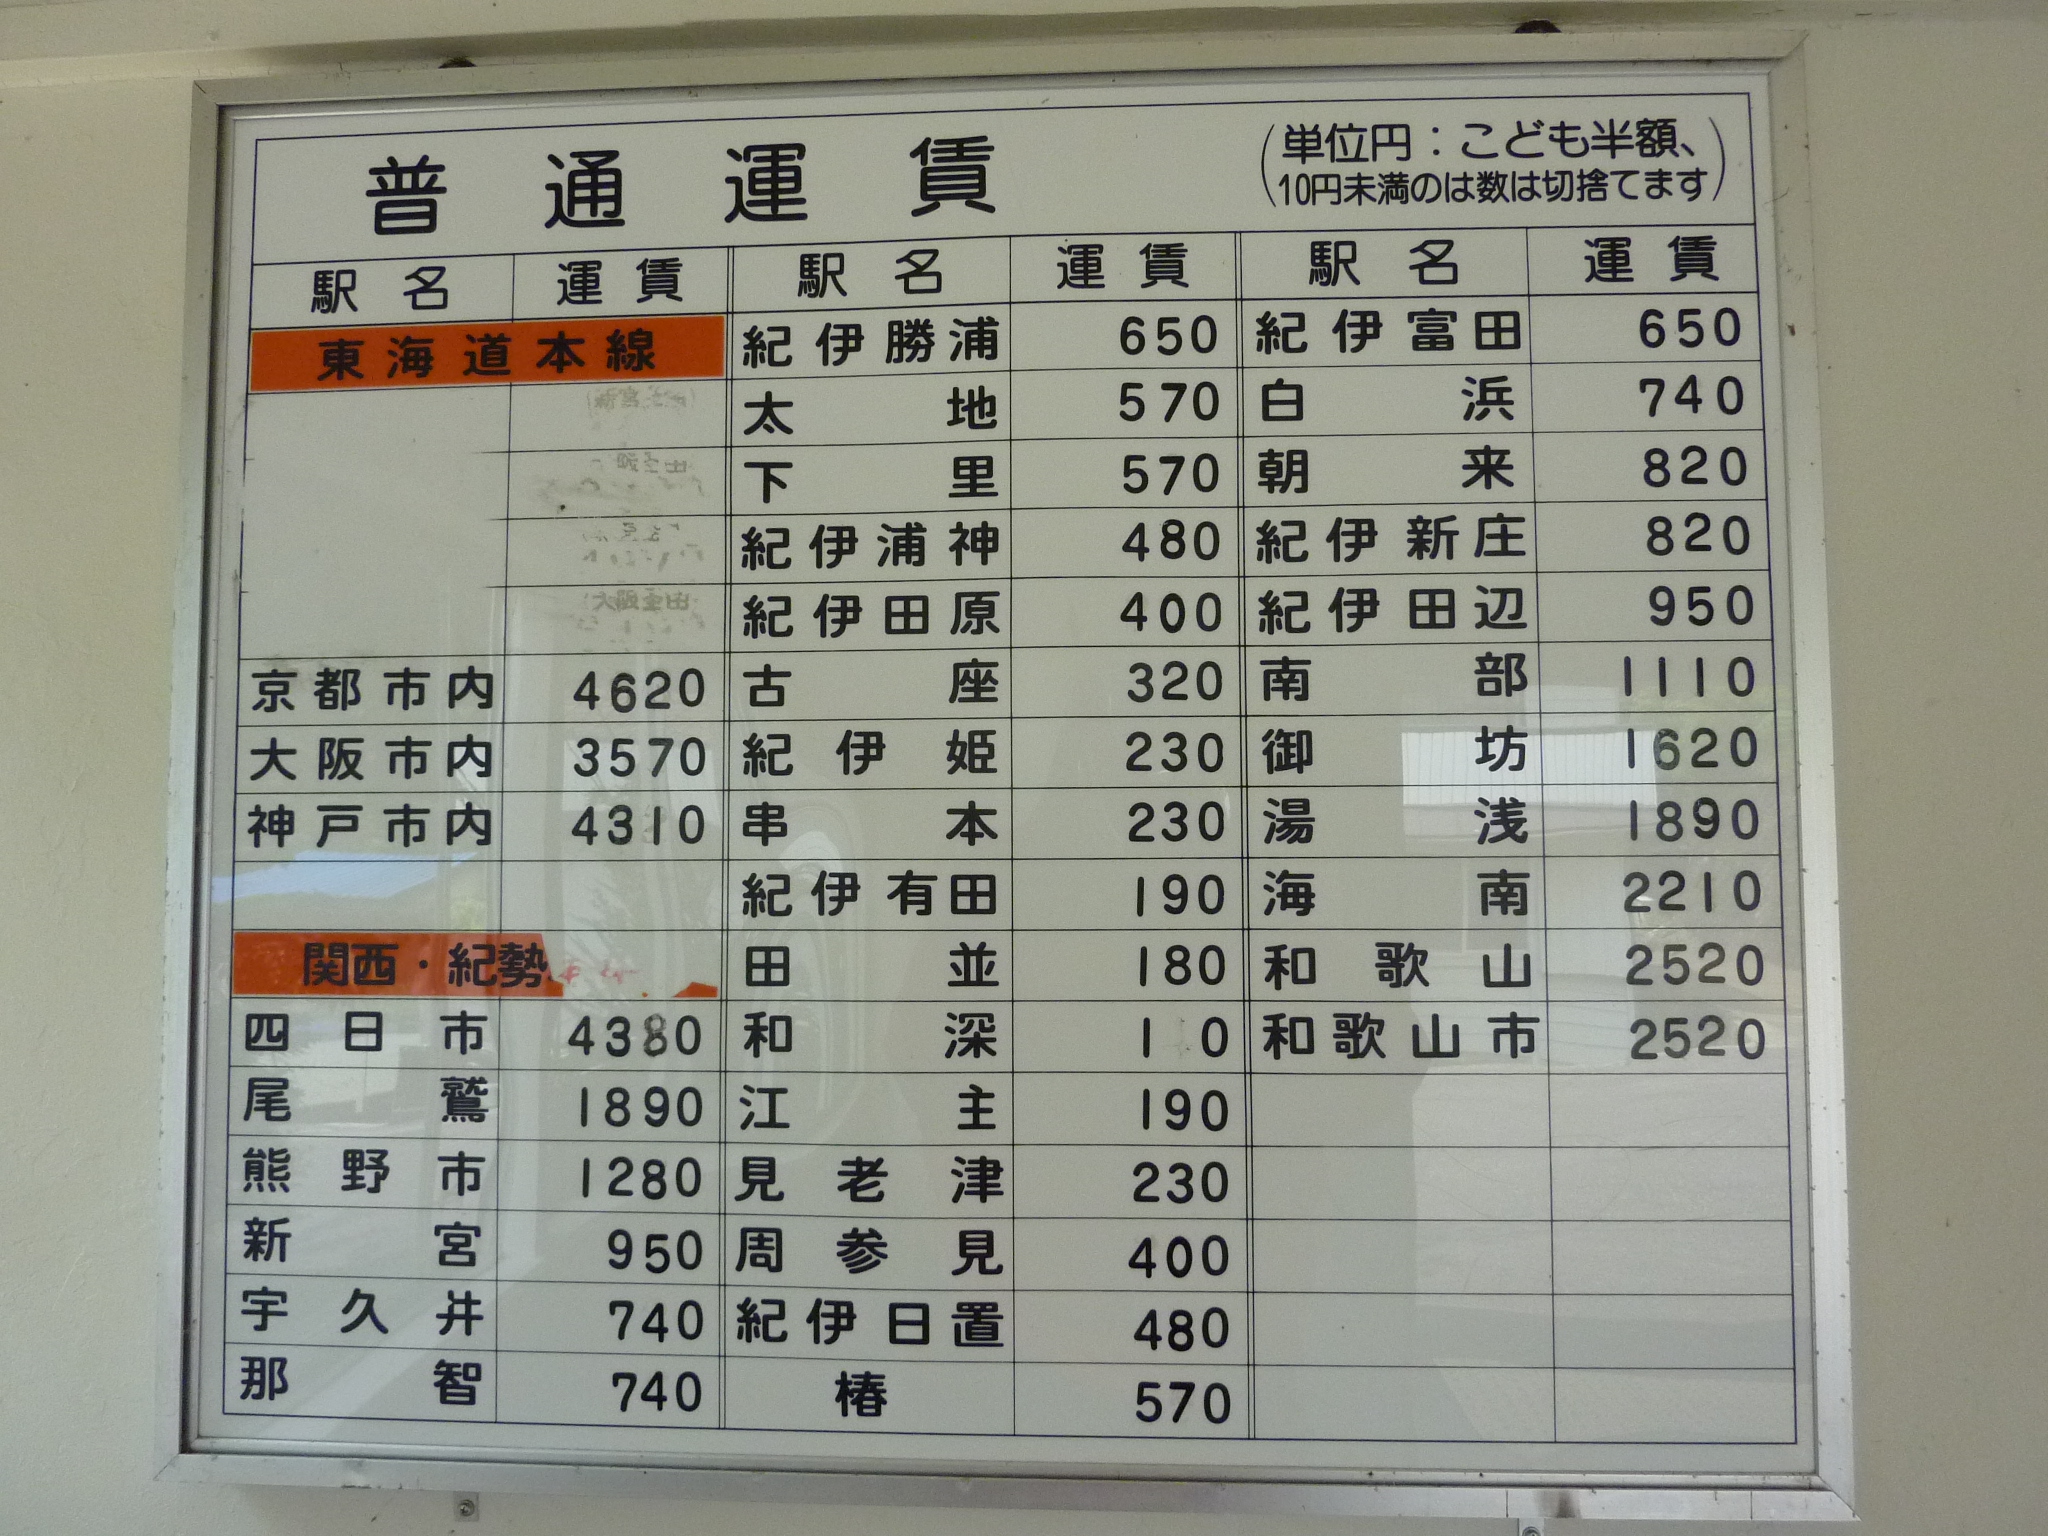 普通運賃
(単位円：こども半額、
10円未満のは数は切捨てます)
駅名 運賃
東海道本線
京都市内 4620
大阪市内 3570
神戸市内 4310
関西・紀勢
四日市 4380
尾鷲 1890
熊野市 1280
新宮 950
宇久井 740
那智 740
駅名 運賃
紀伊勝浦 650
太地 570
下里 570
紀伊浦神 480
紀伊田原 400
古座 320
紀伊姫 230
串本 230
紀伊有田 190
田並 180
和深 1 0
江主 190
見老津 230
周参見 400
紀伊日置 480
椿 570
駅名 運賃
紀伊富田 650
白浜 740
朝来 820
紀伊新庄 820
紀伊田辺 950
南部 1110
御坊 1620
湯浅 1890
海南 2210
和歌山 2520
和歌山市 2520